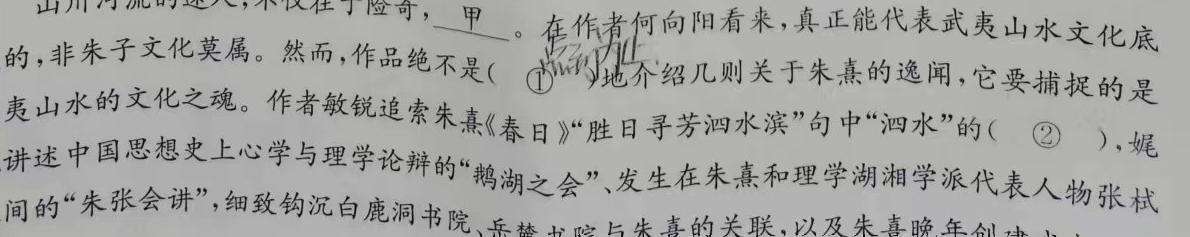 山川河流的迷人,不仅在于险奇, 甲 。在作者何向阳看来,真正能代表武夷山水文化底
的,非朱子文化莫属。然而,作品绝不是( ① )地介绍几则关于朱熹的逸闻,它要捕捉的是
夷山水的文化之魂。作者敏锐追索朱熹《春日》“胜日寻芳泗水滨”句中“泗水”的( ② ),娓
讲述中国思想史上心学与理学论辩的“鹅湖之会”、发生在朱熹和理学湖湘学派代表人物张栻
间的“朱张会讲”,细致钩沉白鹿洞书院、岳麓书院与朱熹的关联,以及朱熹晚年创建